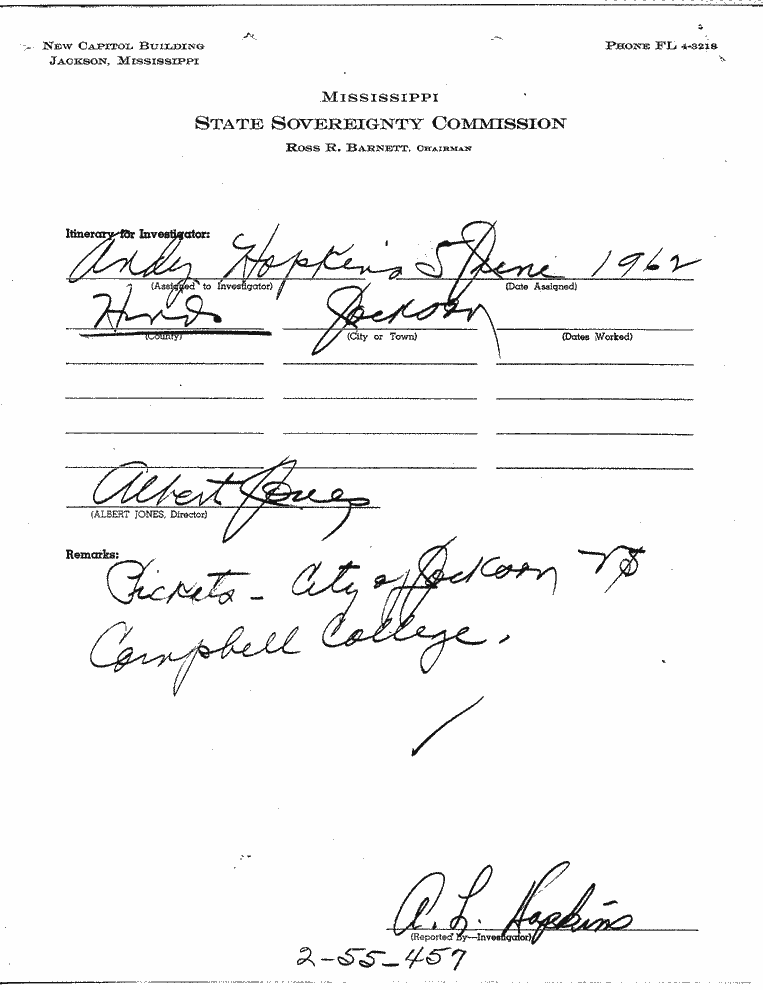 NEW CAPITOL BUILDING
JACKSON, MISSISSIPPI
PHONE FL 4-3218
MISSISSIPPI
STATE SOVEREIGNTY COMMISSION
ROSS R. BARNETT, CHAIRMAN
Itinerary for Investigator:
Andy Hopkins 5 June 1962
(Assigned to Investigator) (Date Assigned)
Hinds Jackson
(County) (City or Town) (Dates Worked)
Albert Jones
(ALBERT JONES, Director)
Remarks:
Pickets - City of Jackson VS
Campbell College.
A. L. Hopkins
(Reported By—Investigator)
2-55-457